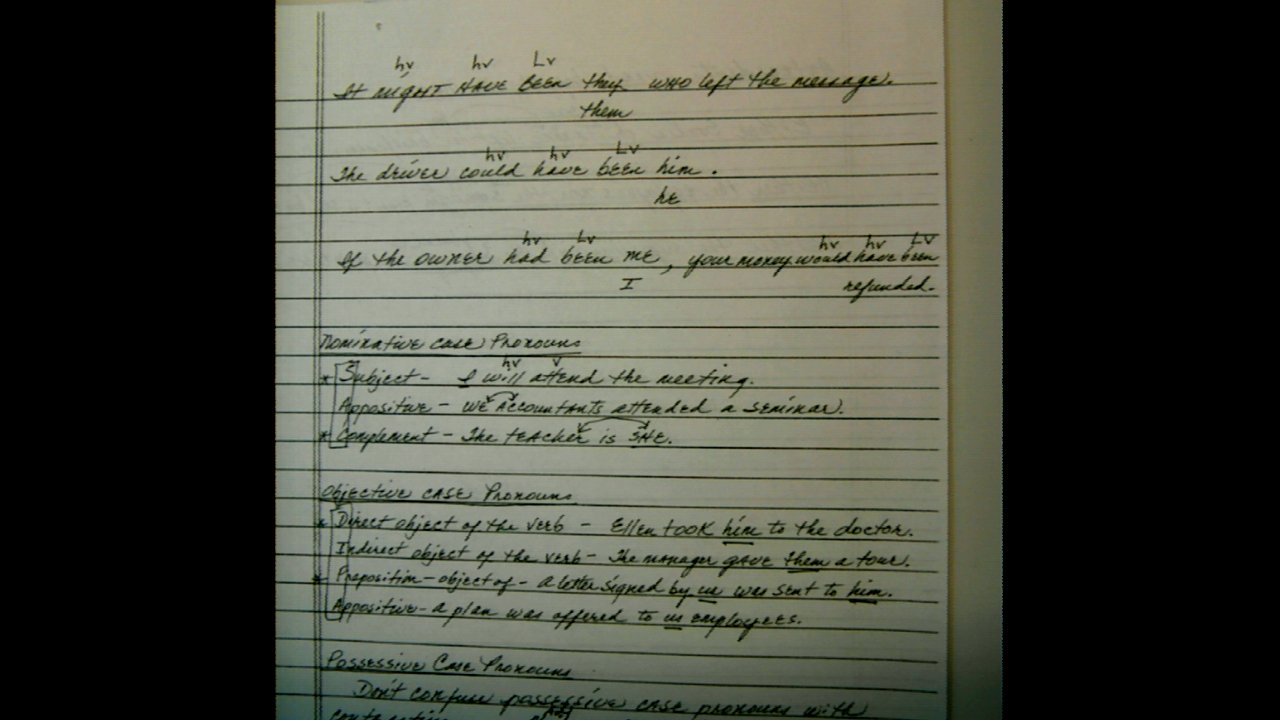 hv hv Lv
It might HAVE BEEN they who left the message.
them
hv hv Lv
The driver could have been him.
he
hv Lv hv hv LV
If the owner had been me, your money would have been
I refunded.
Nominative case Pronouns
hv v
* Subject - I will attend the meeting.
Appositive - WE Accountants attended a seminar.
* Complement - The teacher is SHE.
Objective CASE Pronouns
* Direct object of the verb - Ellen took him to the doctor.
Indirect object of the verb - The manager gave them a tour.
* Preposition - object of - a letter signed by us was sent to him.
Appositive - a plan was offered to us employees.
Possessive Case Pronouns
Don't confuse possessive case pronouns with